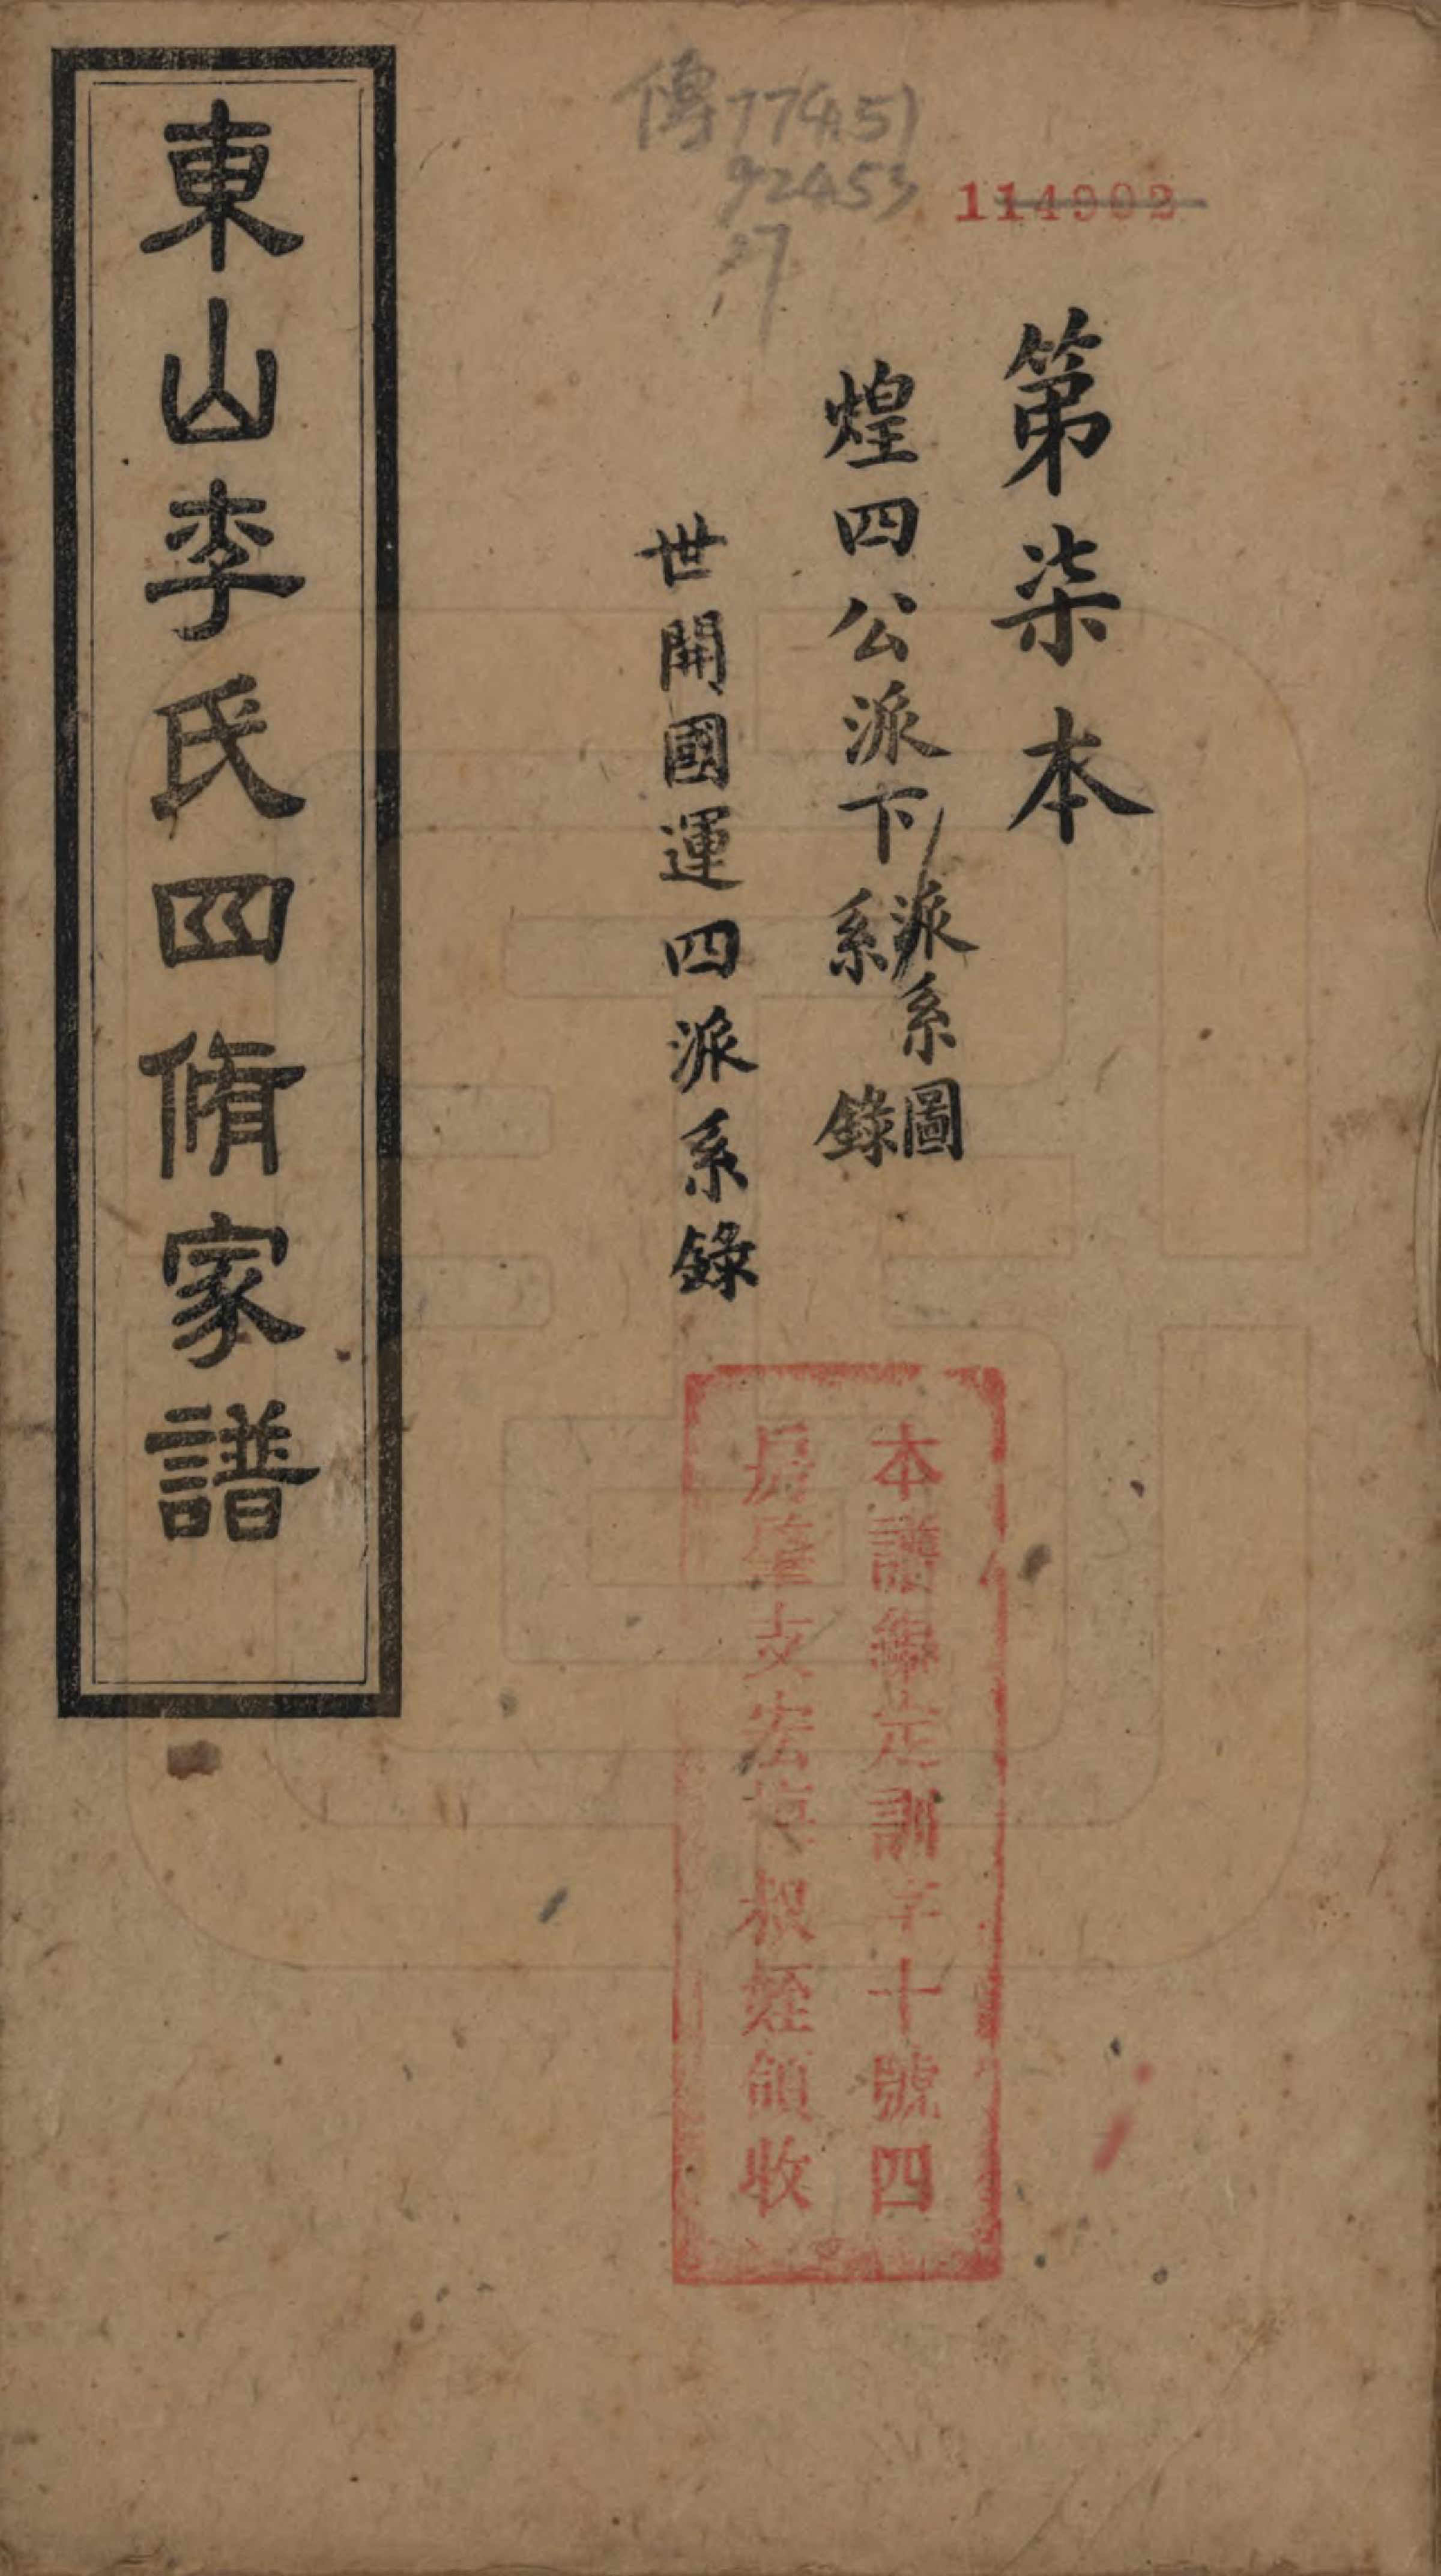 傳774.51
92453
:17
114902
第柒本
煌四公派下派系圖
系錄
世開國運四派系錄
東山李氏四脩家譜
本譜編定訓字十號四
房肇支宏 叔姪領收